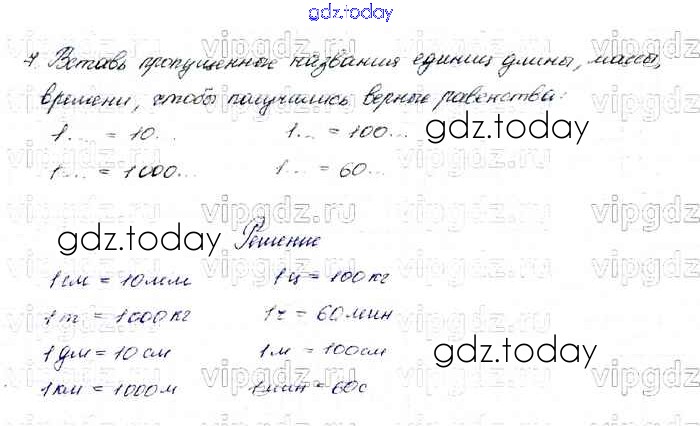 gdz.today
7. Вставь пропущенные названия единиц длины, массы,
времени, чтобы получились верные равенства:
1... = 10... 1... = 100...
gdz.today
1... = 1000... 1... = 60...
vipgdz.ru vipgdz.ru vipgdz.ru
gdz.today Решение
1 см = 10 мм 1 ц = 100 кг
1 т = 1000 кг 1 ч = 60 мин
1 дм = 10 см 1 м = 100 см
gdz.today
1 км = 1000 м 1 мин = 60 с